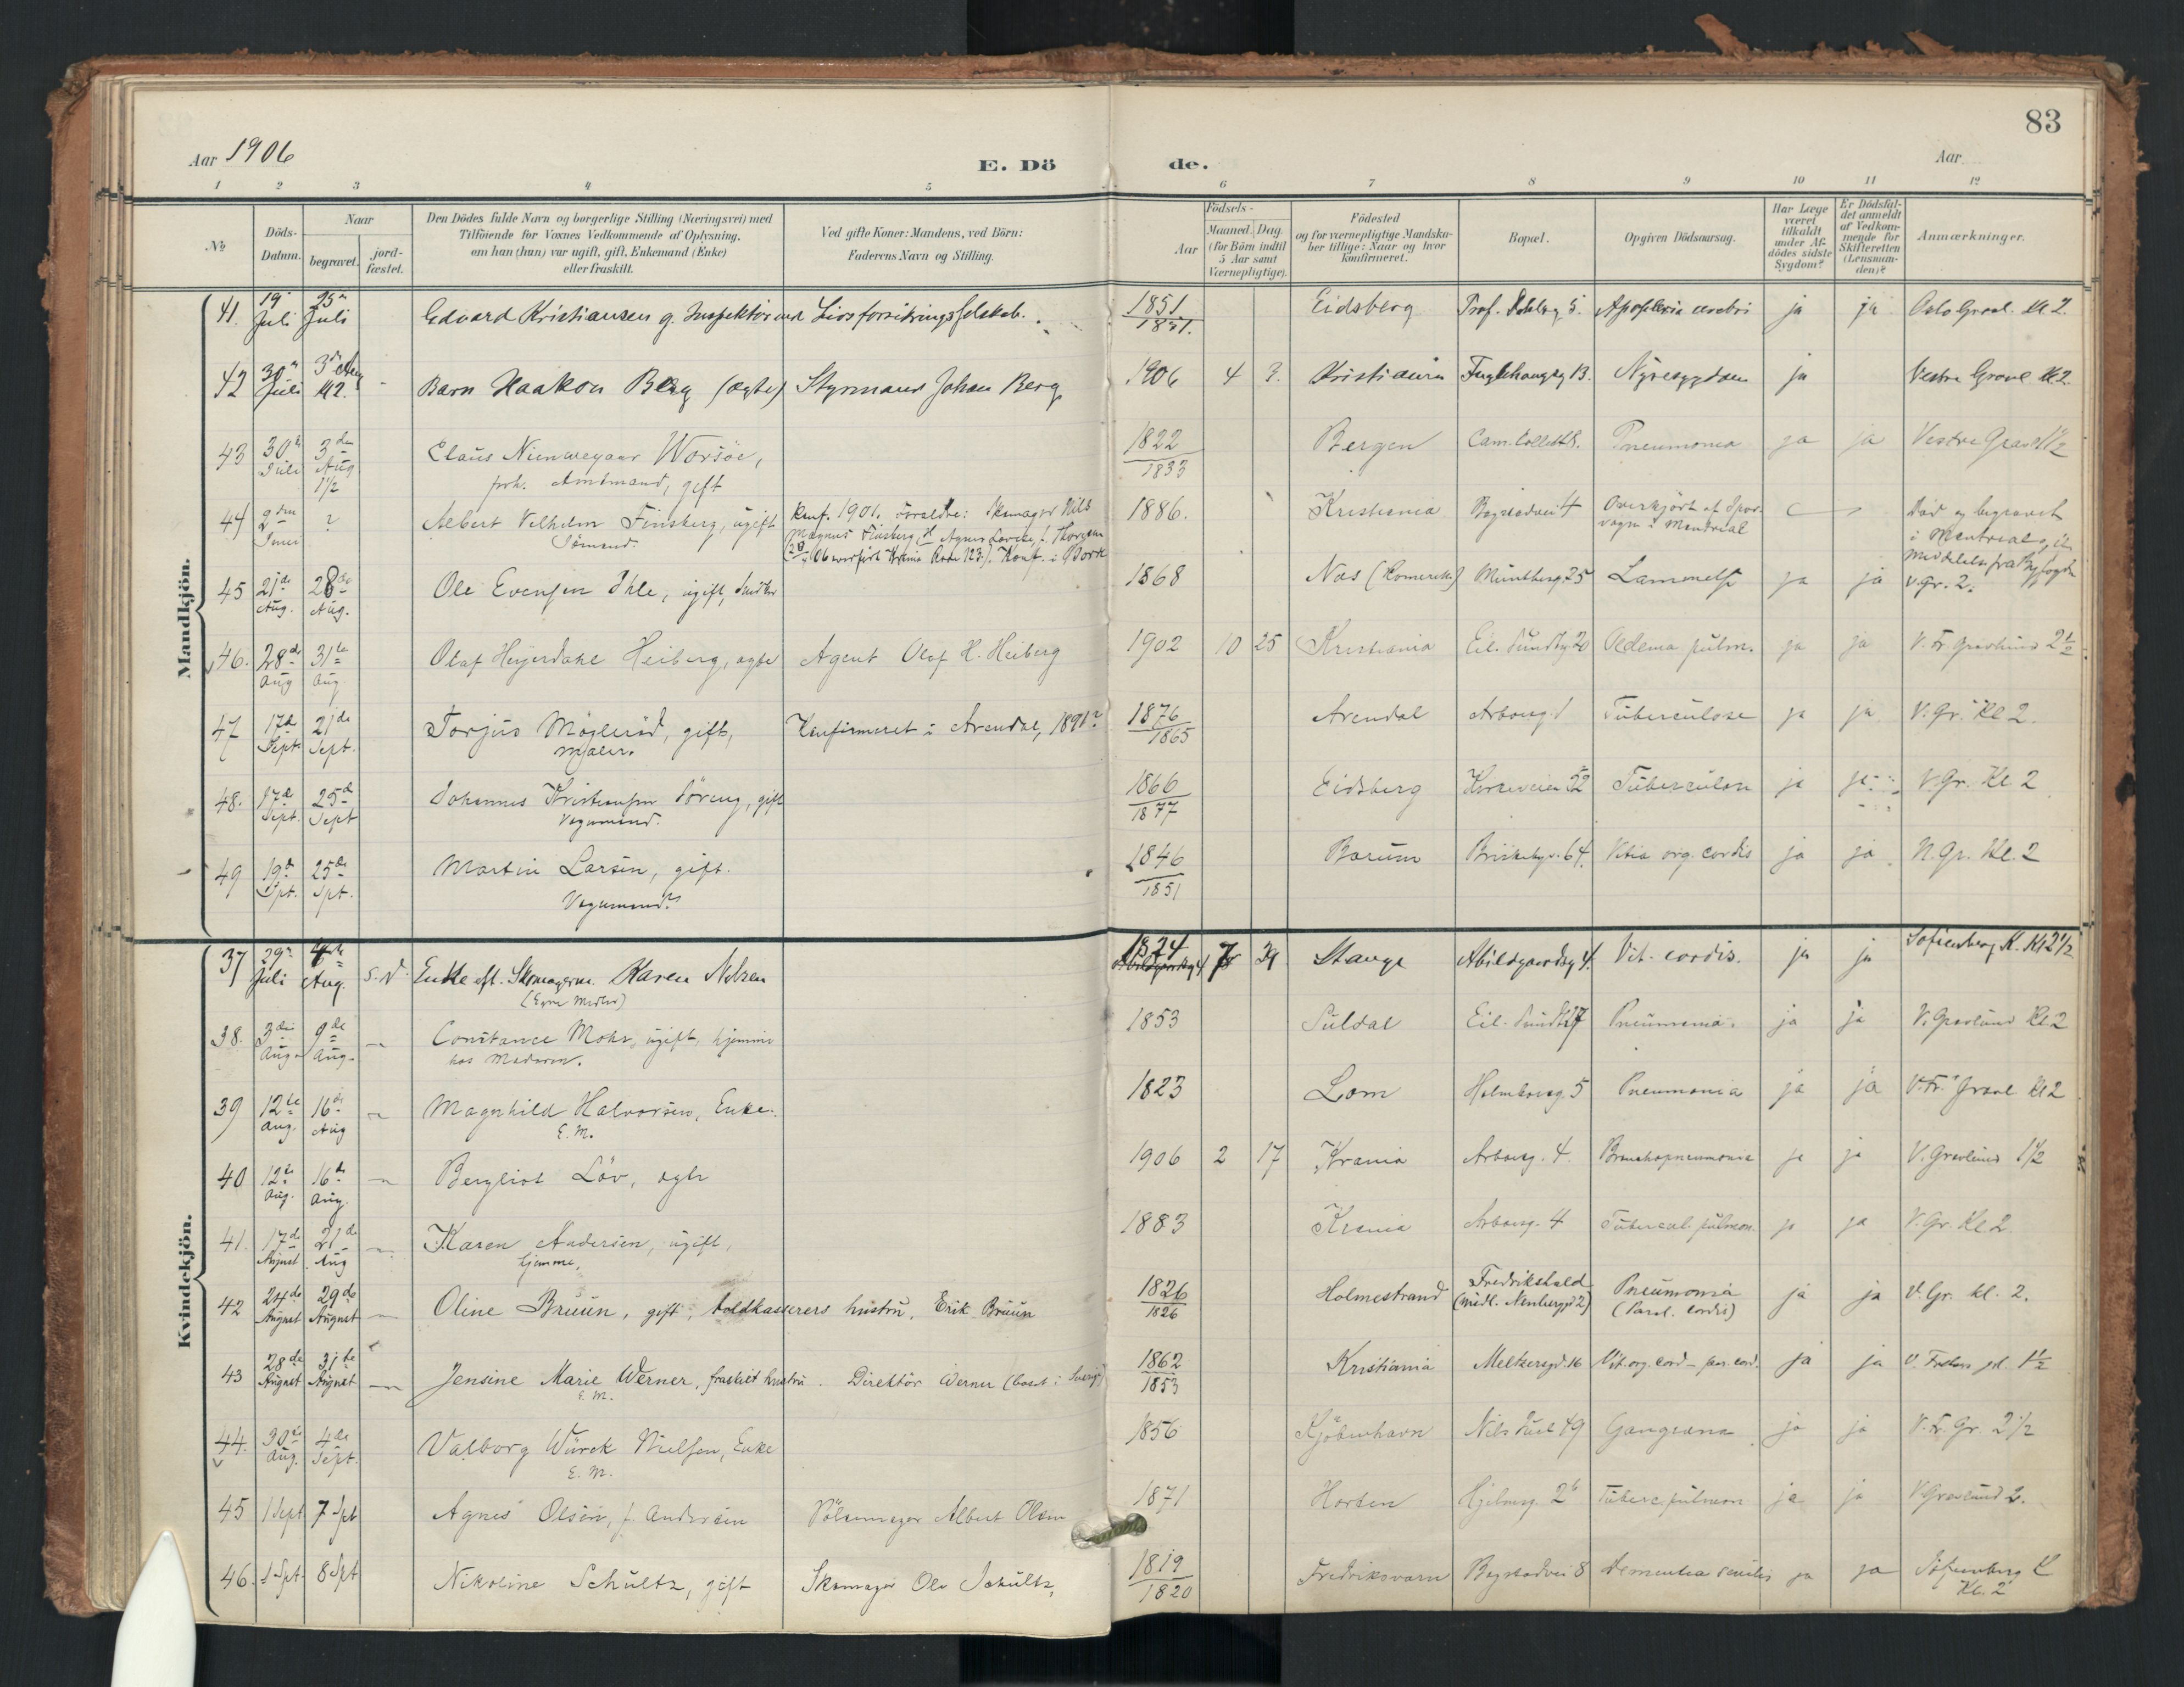 83
Aar 1906
E. Dö de.
Aar
1 2 3 4 5 6 7 8 9 10 11 12
No
Döds-Datum.
Naar
begravet. jordfæstet.
Den Dödes fulde Navn og borgerlige Stilling (Næringsvei) med
Tilföiende for Voxnes Vedkommende af Oplysning,
om han (hun) var ugift, gift, Enkemand (Enke)
eller fraskilt.
Ved gifte Koner: Mandens, ved Börn:
Faderens Navn og Stilling.
Födsels-
Aar
Maaned. Dag.
(for Börn indtil
5 Aar samt
Værnepligtige).
Födested
og for værnepligtige Mandskaber tillige: Naar og hvor
konfirmeret.
Bopæl.
Opgiven Dödsaarsag.
Har Læge
været
tilkaldt
under Afdödes sidste
Sygdom?
Er Dödsfaldet anmeldt
af Vedkommende for
Skifteretten
(Lensmanden)?
Anmærkninger.
Mandkjön.
41. 19 Juli 25 Juli Edvard Kristiansen g. Inspektör ved Livsforsikringsselskab. 1851 1851. Eidsberg Prof. Dahlsg. 5. Apoplexia cerebri ja ja Oslo Gravl. Kl 2.
42 30 Juli 3 Aug Kl 2. Barn Haakon Berg (ægte) Styrmand Johan Berg 1906 4 3. Kristiania Fuglehaugsg 13. Nyresygdom ja Vestre Gravl. Kl 2.
43 30 Juli 3 Aug 1 1/2 Claus Nieuwejaar Worsöe,
forh. Amtmand, gift 1822 1833 Bergen Cam. Colletts Pneumonia ja ja Vestre Gravl 1 1/2
44 2den Juni ? Albert Vilhelm Finsberg, ugift
Sömand. Konf. 1901. Foreldre: Skomager Nils
Magnus Finsberg, 1886. Kristiania Bogstadvei 4 Overkjört af Sporvogn i Montreal Död og begravet
i Montreal
45 21de Aug. 28de Aug. Ole Evensen Ihle, ugift, 1868 Næs (Romerike) Munthesg 25 Lammelse ja ja V. Gr. 2.
46. 28de Aug 31te Aug Olaf Heyerdahl Heiberg, ægte Agent Olaf H. Heiberg 1902 10 25 Kristiania Eil. Sundtsg 20 Oedema pulm. ja ja V. Fr. Gravlund 2 1/2
47 17de Sept. 21de Sept. Torjus Möglestö, gift,
Maler. Konfirmeret i Arendal, 1891? 1876 1865 Arendal Arbosg. 1 Tuberculose ja ja V. Gr. Kl 2.
48. 17de Sept. 25de Sept Johannes Kristiansen Söreng, gift
Vognmand. 1866 1877 Eidsberg Tuberculose ja ja V. Gr. Kl 2
49 19de Spt. 25de Spt. Martin Larsen, gift.
Vognmand? 1846 1851 Bærum Briskebyv. 64. Vitia org. cordis ja ja N. Gr. Kl. 2
Kvindekjön.
37 29 Juli 4de Aug. S. N. Enke eft. Skomagerm. Karen Nelsen
(Egne Midler) 1824 7 29 Stange Abildgaardsg 4. Vit. cordis. ja ja Sofienberg K. Kl 2 1/2
38. 3die Aug. 9de Aug. Constance Mohr, ugift, hjemme
hos Moderen. 1853 Suldal Eil. Sundts 27 Pneumonia. ja ja V. Gravlund Kl. 2
39 12te Aug. 16de Aug Magnhild Halvorsen, Enke.
E. M. 1823 Lom Holmboesg. 5 Pneumonia ja ja V. Fr. Gravl Kl 2
40 12te Aug. 16de Aug. Bergliot Löv, ægte 1906 2 17 Krania Arbosg. 4. Bronchopneumonie ja ja V. Gravlund 1 1/2
41. 17de August 21de Aug Karen Andersen, ugift,
hjemme. 1883 Krania Arbosg. 4 Tubercul. pulmon. ja ja V. Gr. Kl 2.
42 24de August 29de August Oline Bruun, gift, toldkasserers hustru, Erik Bruun 1826 1826 Holmestrand Fredrikshald Pneumonia
(Paral. cordis) ja ja V. Gr. kl. 2.
43 28de August 31te August Jensine Marie Werner, fraskilt hustru. Direktör Werner (bosat i Sverige)
E. M. 1862 1853 Kristiania Meltzersgd. 16 Vit. org. cord - par. cord. ja ja V. 1 1/2
44. 30te Aug. 4de Sept. Valborg Würck Nielsen, Enke
E. M. 1856 Kjöbenhavn Nils Juels 49 Gangræna ja ja V. Fr. Gr. 2 1/2
45 1 Sept 7 Spt Agnes Olsen, f. Andersen Pölsemager Albert Olsen 1871 Horten Tuberc. pulmon ja ja V Gravlund 2.
46. 1 Spt. 8 Spt Nikoline Schultz, gift Skomager Ole Schultz, 1819 1820 Fredriksværn Bogstadvei 8 Dementia senilis ja ja Sofienberg K
Kl. 2